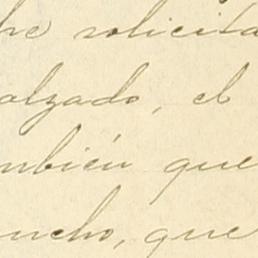 he solicita
alzado, el
mbién que
ucho, que